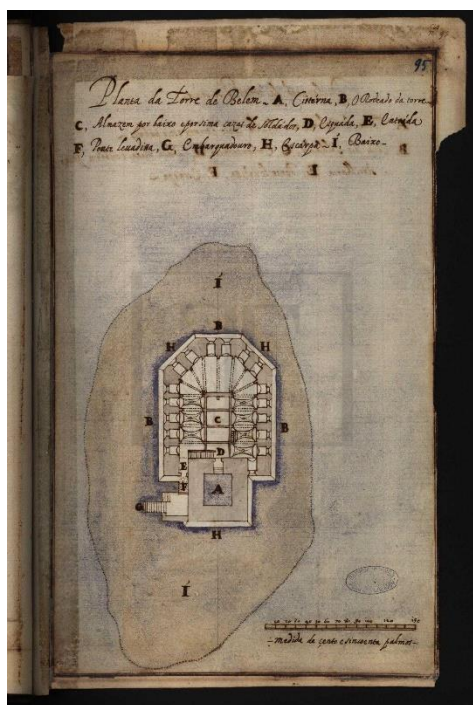 95
Planta da Torre de Belem - A, Cisterna, B, O Rodeado da torre
C, Almazem por baixo eporsima cazas de Soldados, D, Esquada, E, Entrada
F, Ponte leuadissa, G, Embarquadouro, H, Escarpa - Í, Baixo -
Í
B
H H
B C B
D
E
F A
G
H
Í
150
- medida de cento esincoenta palmos -